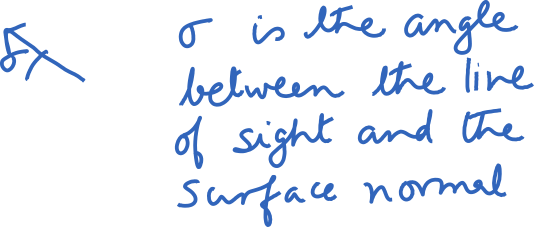 σ
σ is the angle
between the line
of sight and the
surface normal